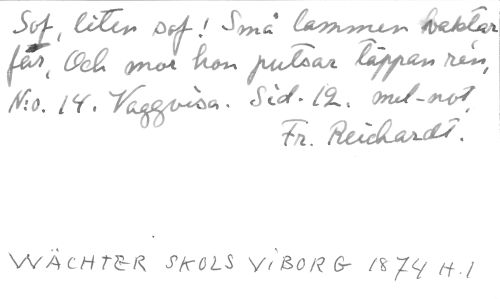 Sof, liten sof! Små lammen vaktar
får, Och mor hon putsar täppan ren,
N:o. 14. Vaggvisa. Sid. 12. mel-not,
Fr. Reichardt.
WÄCHTER SKOLS VIBORG 1874 H.I